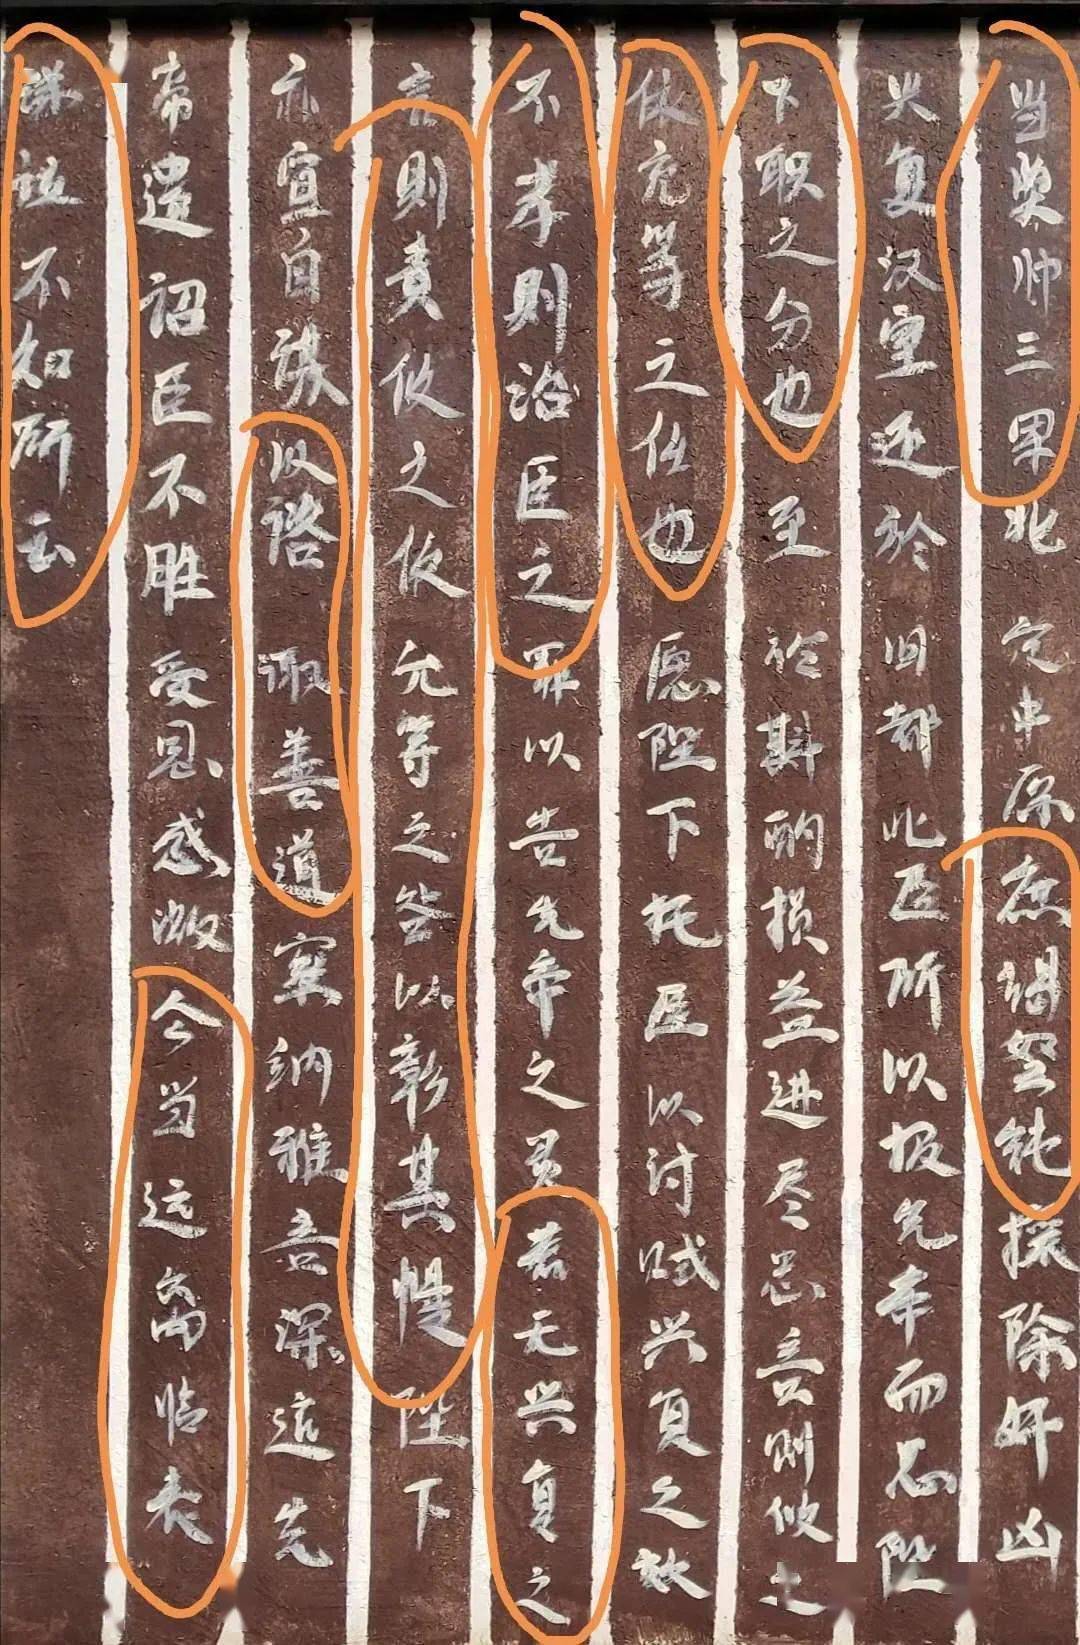 当奖帅三军北定中原庶竭驽钝攘除奸凶
兴复汉室还於旧都此臣所以报先帝而忠陛
下职之分也至於斟酌损益进尽忠言则攸之
依允等之任也愿陛下托臣以讨贼兴复之效
不孝则治臣之罪以告先帝之灵若无兴复之
言则责攸之依允等之咎以彰其慢陛下
亦宜自谋以谘诹善道察纳雅言深追先
帝遗诏臣不胜受恩感激今当远离临表
不知所云